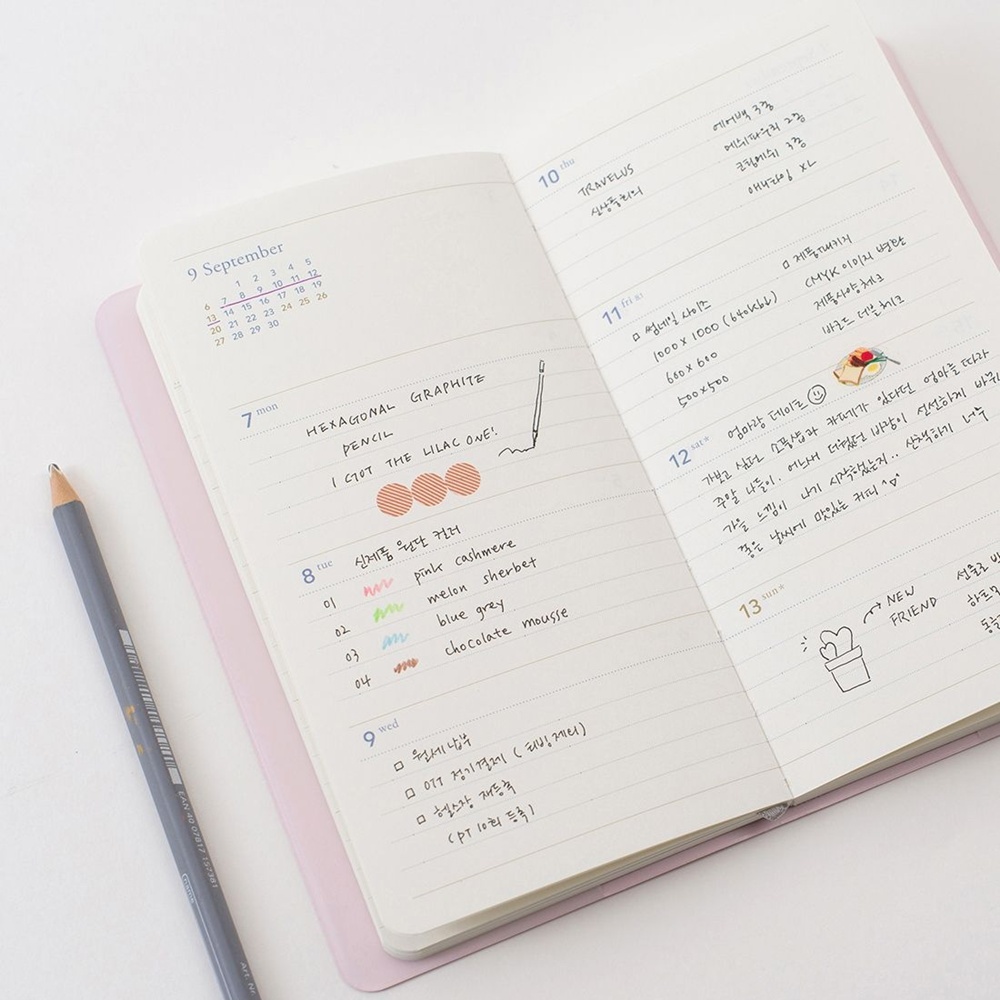 9 September
1 2 3 4 5
6 7 8 9 10 11 12
13 14 15 16 17 18 19
20 21 22 23 24 25 26
27 28 29 30
7 mon
HEXAGONAL GRAPHITE
PENCIL
I GOT THE LILAC ONE!
8 tue
신제품 원단 컬러
01 pink cashmere
02 melon sherbet
03 blue grey
04 chocolate mousse
9 wed
월세 납부
OTT 정기결제 (티빙 제외)
헬스장 재등록
(PT 10회 등록)
10 thu
TRAVELUS
신상품회의
에어백 3종
메쉬파우치 2종
크림메쉬 3종
애니타임 XL
11 fri
썸네일 사이즈
1000 x 1000 (640Kbb)
600 x 600
500x500
제품패키지
CMYK 이미지 변환
제품사양체크
바코드 더블체크
12 sat*
엄마랑 데이트
가보고 싶던 소품샵과 카페가 있다던 엄마를 따라
주말 나들이. 어느새 더웠던 바람이 선선하게 바뀌
가을 느낌이 나기 시작했는지.. 산책하기 너무
좋은 날씨에 맛있는 커피 ^^
13 sun*
NEW
FRIEND
선물로 받
하르
EAN 40 07817 157381